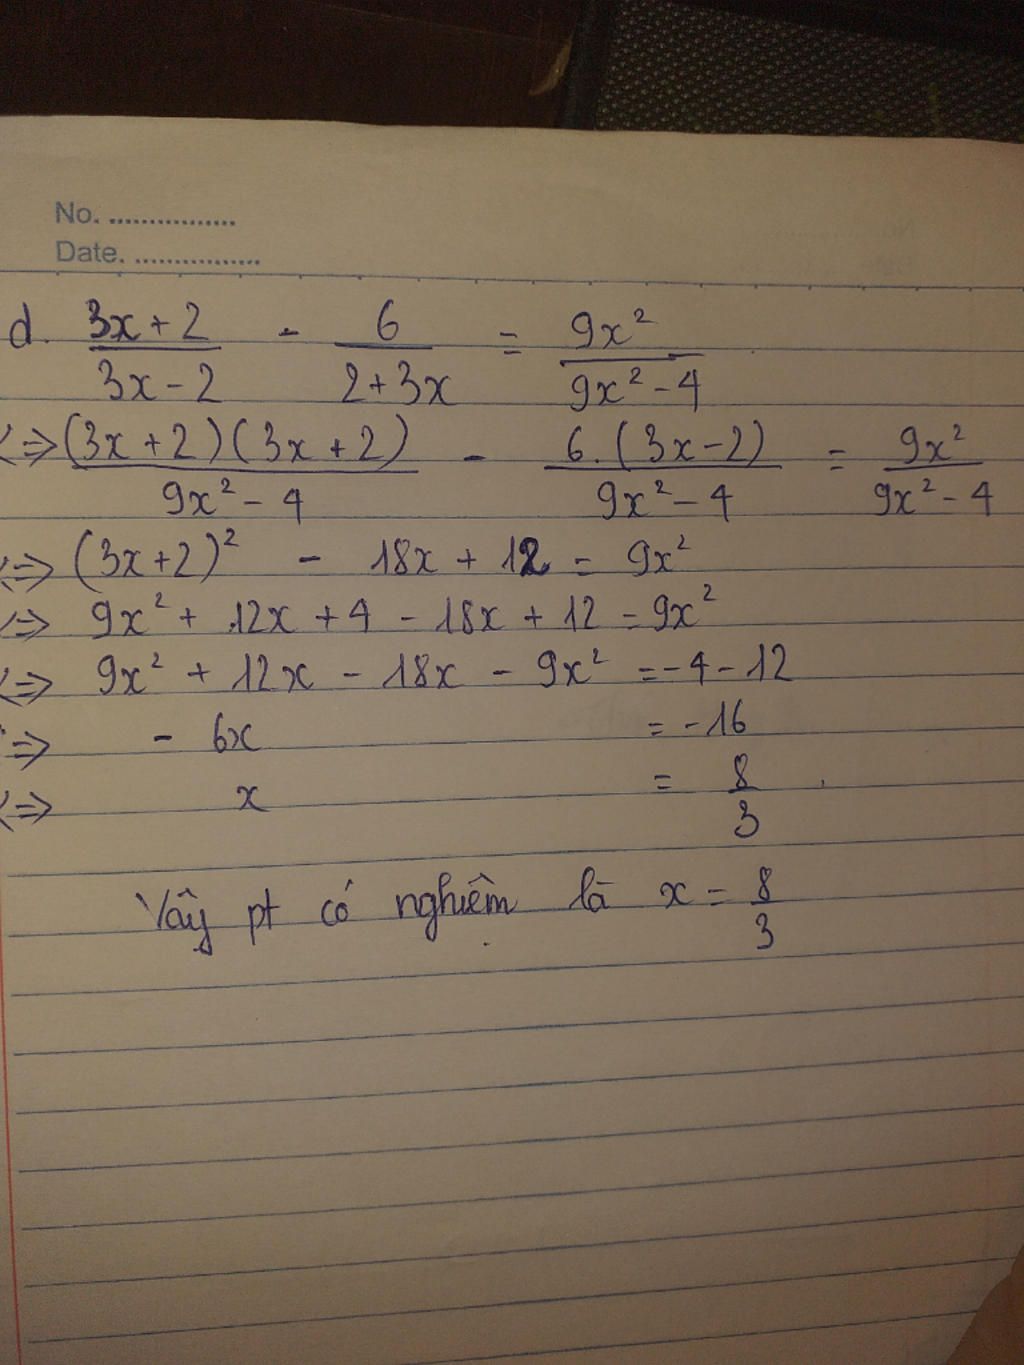 No. ................
Date. ................
d. (3x+2)/(3x-2) - 6/(2+3x) = 9x²/(9x²-4)
<=> (3x+2)(3x+2)/(9x²-4) - 6.(3x-2)/(9x²-4) = 9x²/(9x²-4)
<=> (3x+2)² - 18x + 12 = 9x²
<=> 9x² + 12x + 4 - 18x + 12 = 9x²
<=> 9x² + 12x - 18x - 9x² = -4 - 12
<=> - 6x = - 16
<=> x = 8/3
Vậy pt có nghiệm là x = 8/3